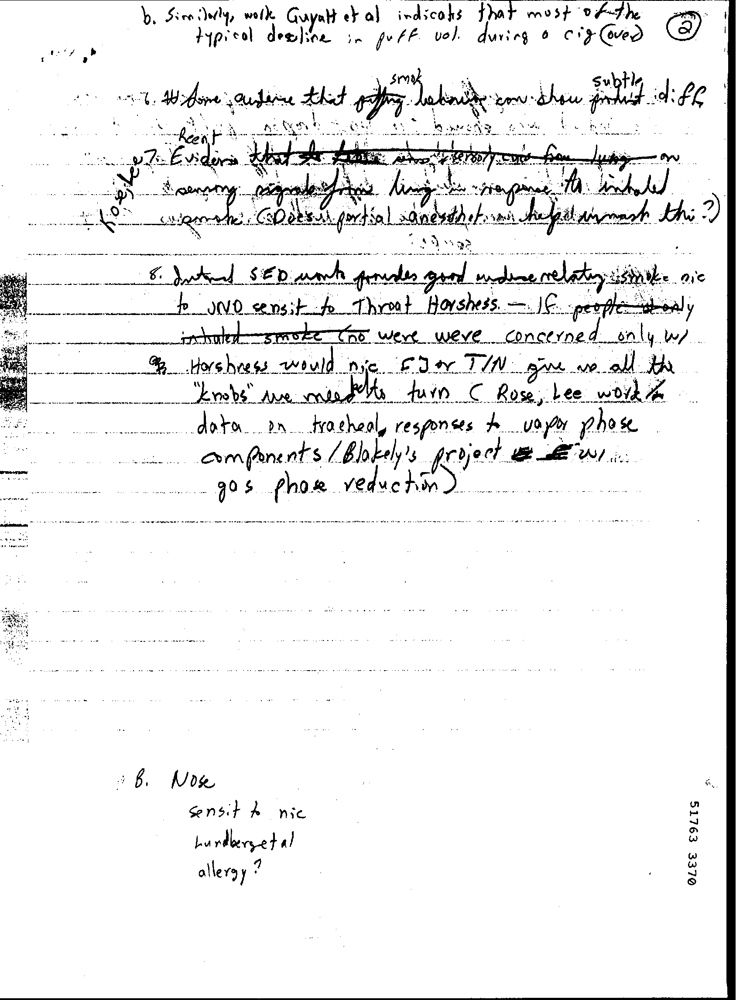 b. Similarly, work Guyatt et al indicats that most of the
typical decline in puff vol. during a cig (over)
2
smok subtle
Some evidence that behavior can show product diff
Recent
7. Evidence on
sensory signals from lung in response to inhaled
smoke (Does partial anesthet help unmask this?)
8. Internal SED work provides good evidence relating smoke nic
to JND sensit to Throat Harshess. — If people only
inhaled smoke (no were were concerned only w/
Harshness would nic FJ or T/N give us all the
"knobs" we need to turn ( Rose, Lee work
data on tracheal responses to vapor phase
components / Blakely's project w/
gas phase reduction)
B. Nose
sensit to nic
Lundberg et al
allergy?
51763 3370